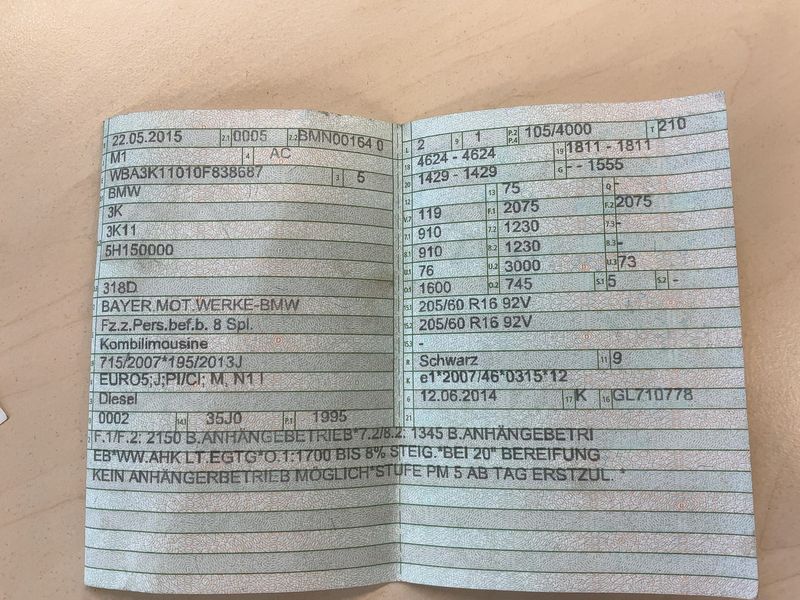 22.05.2015 2.1 0005 2.2 BMN00164 0
M1 4 AC
WBA3K11010F838687 3 5
BMW
3K
3K11
5H150000
318D
BAYER.MOT.WERKE-BMW
Fz.z.Pers.bef.b. 8 Spl.
Kombilimousine
715/2007*195/2013J
EURO5;J;PI/CI; M, N1 I
Diesel
0002 14.1 35J0 P.1 1995
L 2 9 1 P.2 P.4 105/4000 T 210
18 4624 - 4624 19 1811 - 1811
20 1429 - 1429 G - - 1555
12 13 75 Q -
V.7 119 F.1 2075 F.2 2075
7.1 910 7.2 1230 7.3 -
8.1 910 8.2 1230 8.3 -
U.1 76 U.2 3000 U.3 73
O.1 1600 O.2 745 S.1 5 S.2 -
15.1 205/60 R16 92V
15.2 205/60 R16 92V
15.3 -
R Schwarz 11 9
K e1*2007/46*0315*12
6 12.06.2014 17 K 16 GL710778
21
F.1/F.2: 2150 B.ANHÄNGEBETRIEB*7.2/8.2: 1345 B.ANHÄNGEBETRI
EB*WW.AHK LT.EGTG*O.1:1700 BIS 8% STEIG.*BEI 20" BEREIFUNG
KEIN ANHÄNGERBETRIEB MÖGLICH*STUFE PM 5 AB TAG ERSTZUL. *